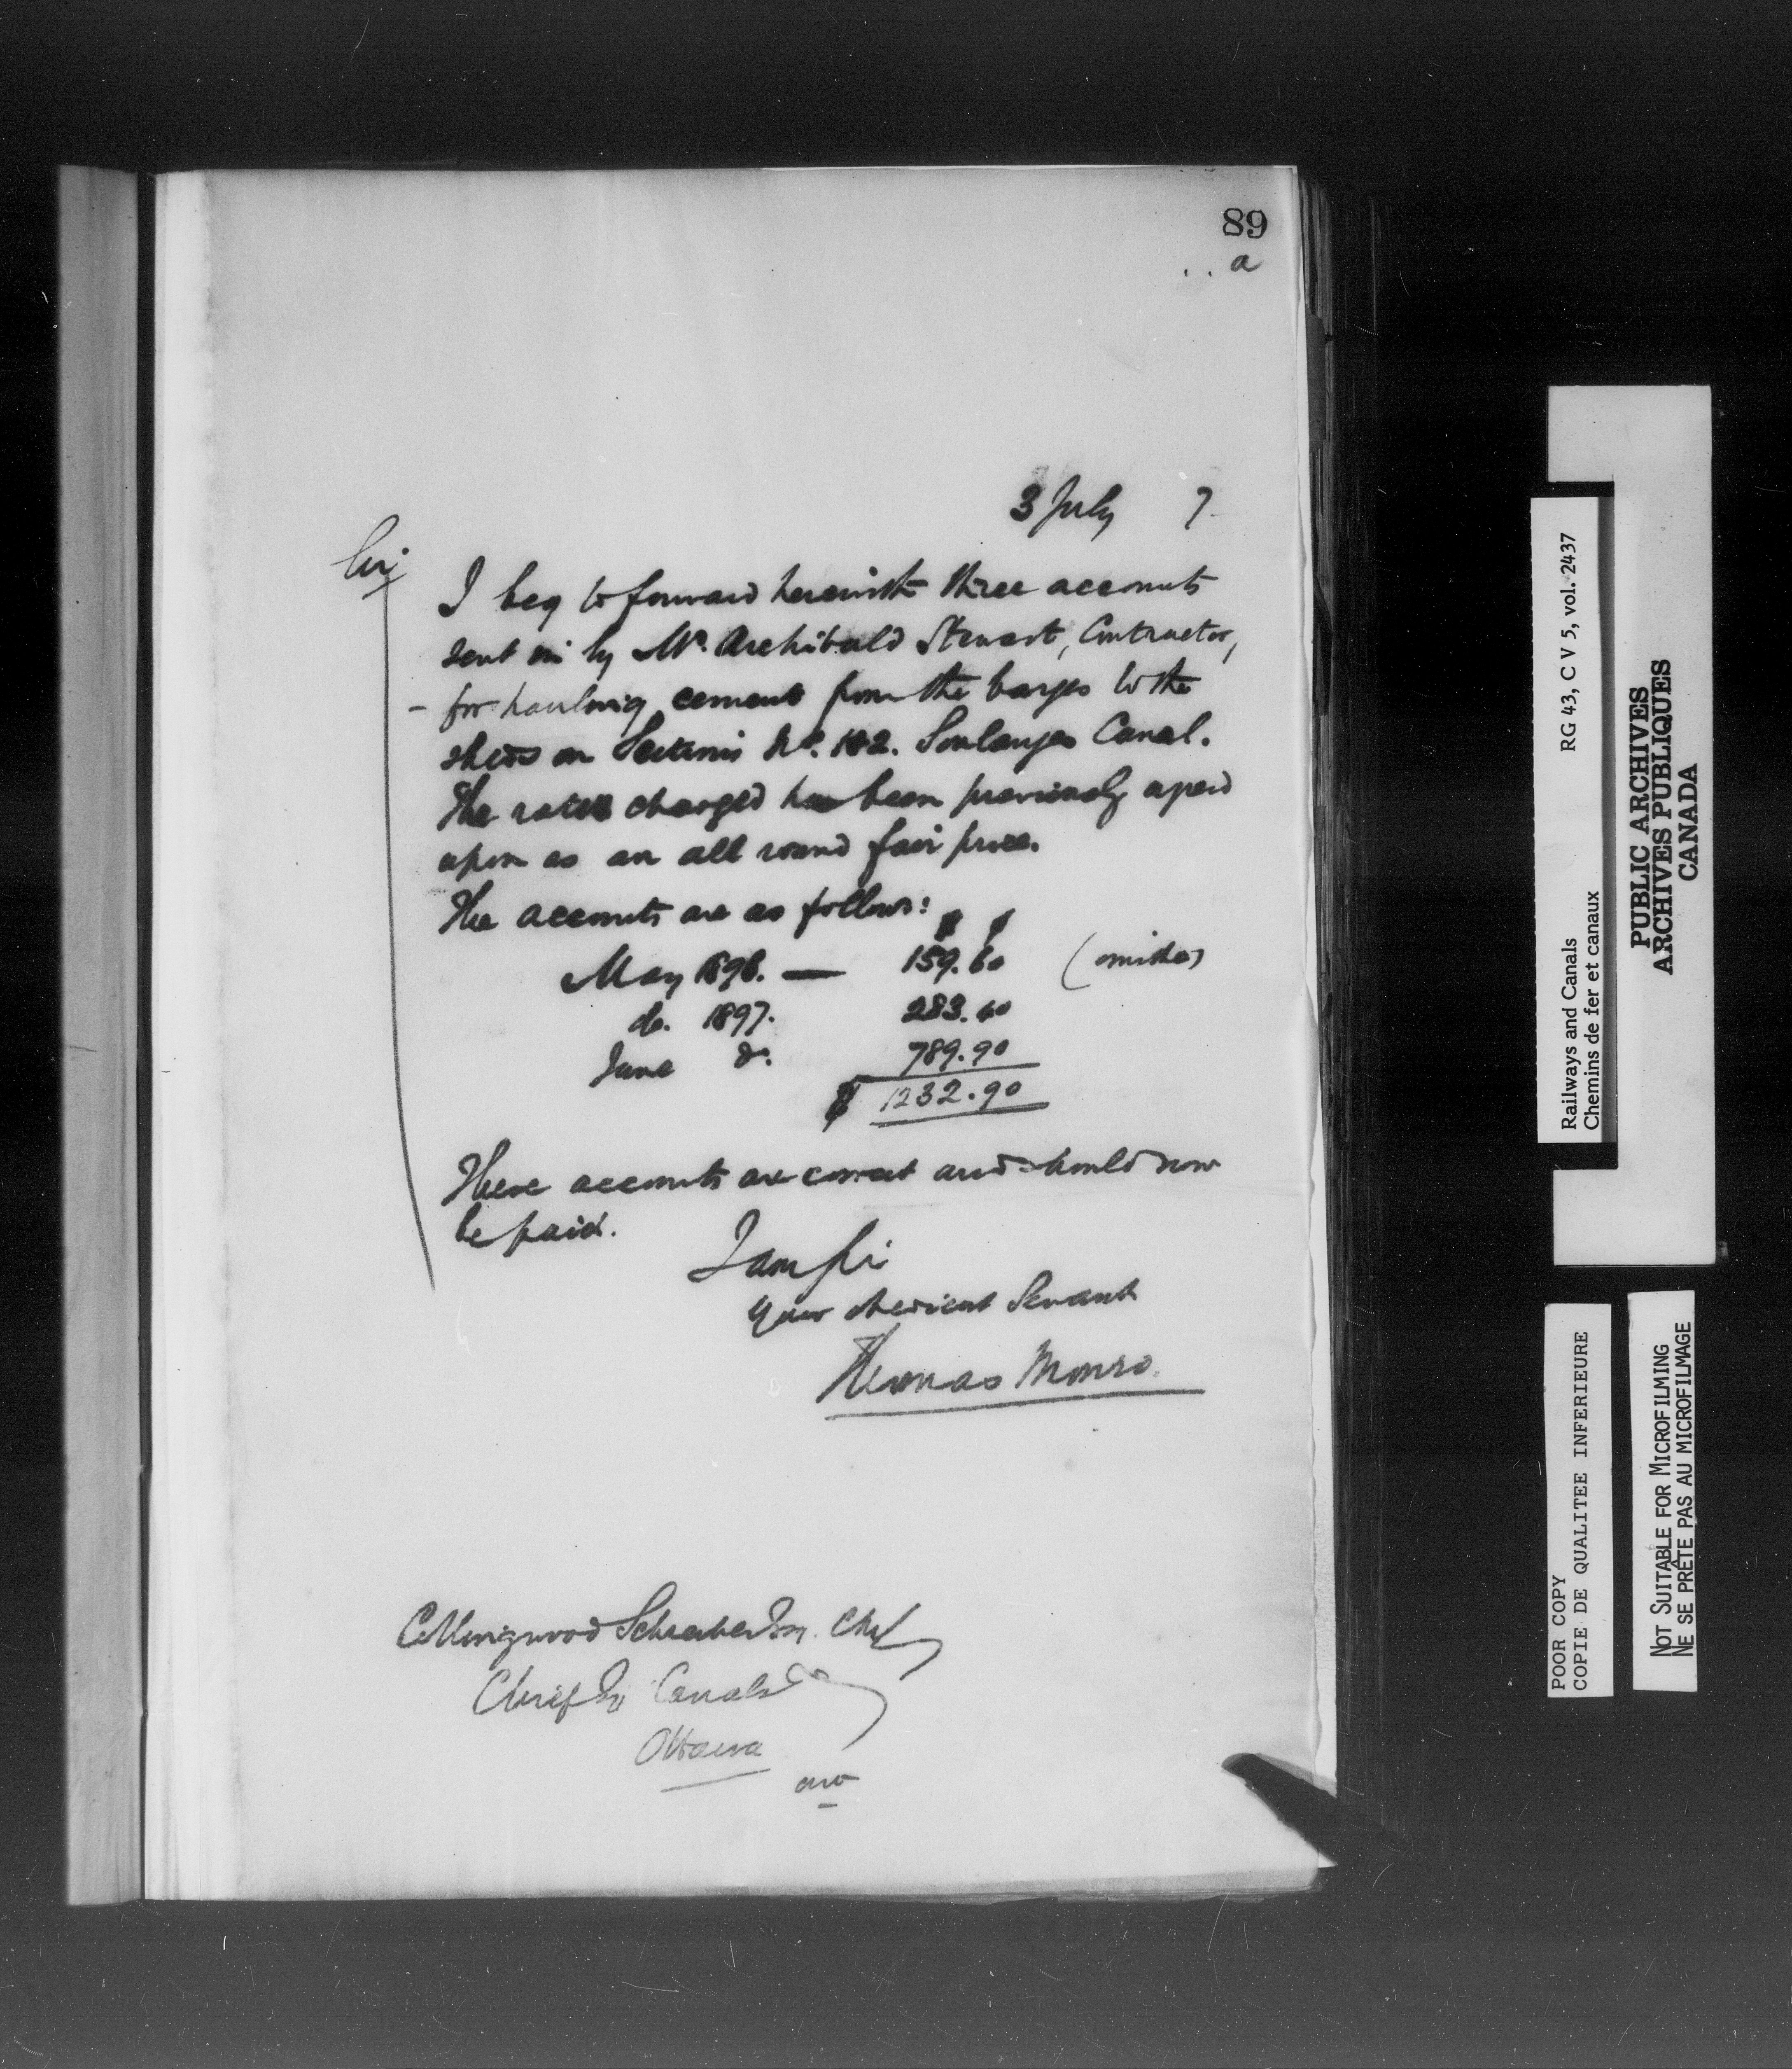 89
a
3 July 7
Sir,
I beg to forward herewith three accounts
sent in by Mr. Archibald Stewart, Contractor,
- for hauling cement from the barges to the
sheds on Sections No. 1 & 2. Soulanges Canal.
The rates charged has been previously agreed
upon as an all round fair price.
The accounts are as follows:
$ ¢
May 1896. — 159.60 (omitted)
do. 1897. 283.40
June do. 789.90
$ 1232.90
These accounts are correct and should now
be paid.
I am Sir
Your obedient Servant
Thomas Monro
Collingwood Schreiber Esq. CMG
Chief Eng Canals
Ottawa
Railways and Canals RG 43, C V 5, vol. 2437
Chemins de fer et canaux
PUBLIC ARCHIVES
ARCHIVES PUBLIQUES
CANADA
POOR COPY
COPIE DE QUALITEE INFERIEURE
NOT SUITABLE FOR MICROFILMING
NE SE PRÊTE PAS AU MICROFILMAGE